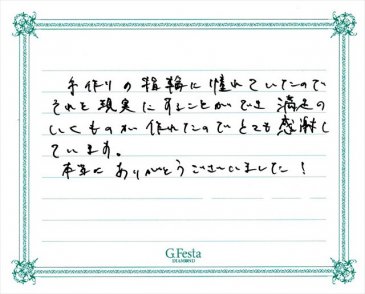 手作りの指輪に憧れていたので
それを現実にすることができ 満足の
いくものが作れたのでとても感謝し
ています。
本当にありがとうございました！
G.Festa
DIAMOND